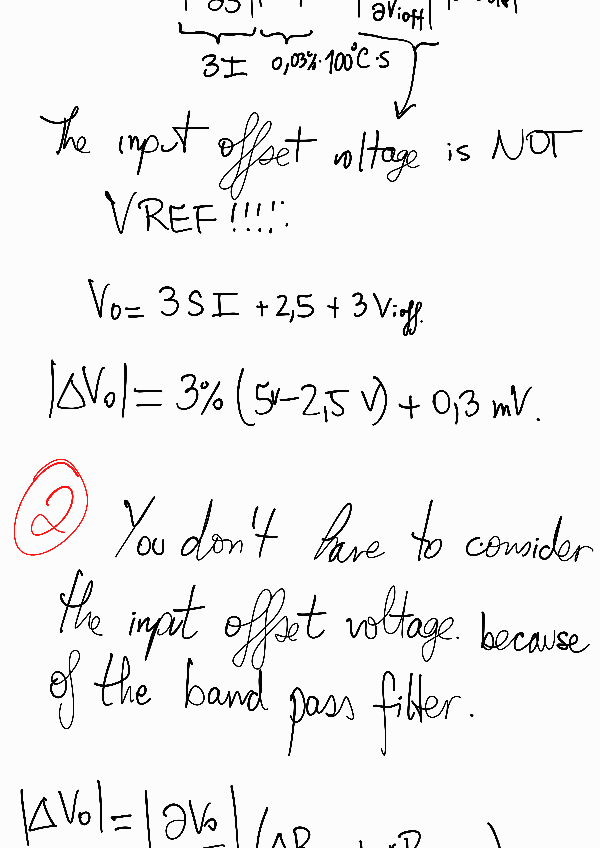 3I 0,03%·100°C·S
The input offset voltage is NOT
VREF!!!!!
Vo= 3SI +2,5 + 3Vioff.
|ΔVo|= 3% (5v-2,5 V) + 0,3 mV.
2 You don't have to consider
the input offset voltage. because
of the band pass filter.
|ΔVo|=|∂Vo|